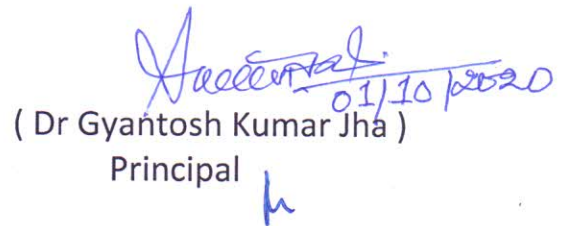 01/10/2020
( Dr Gyantosh Kumar Jha )
Principal